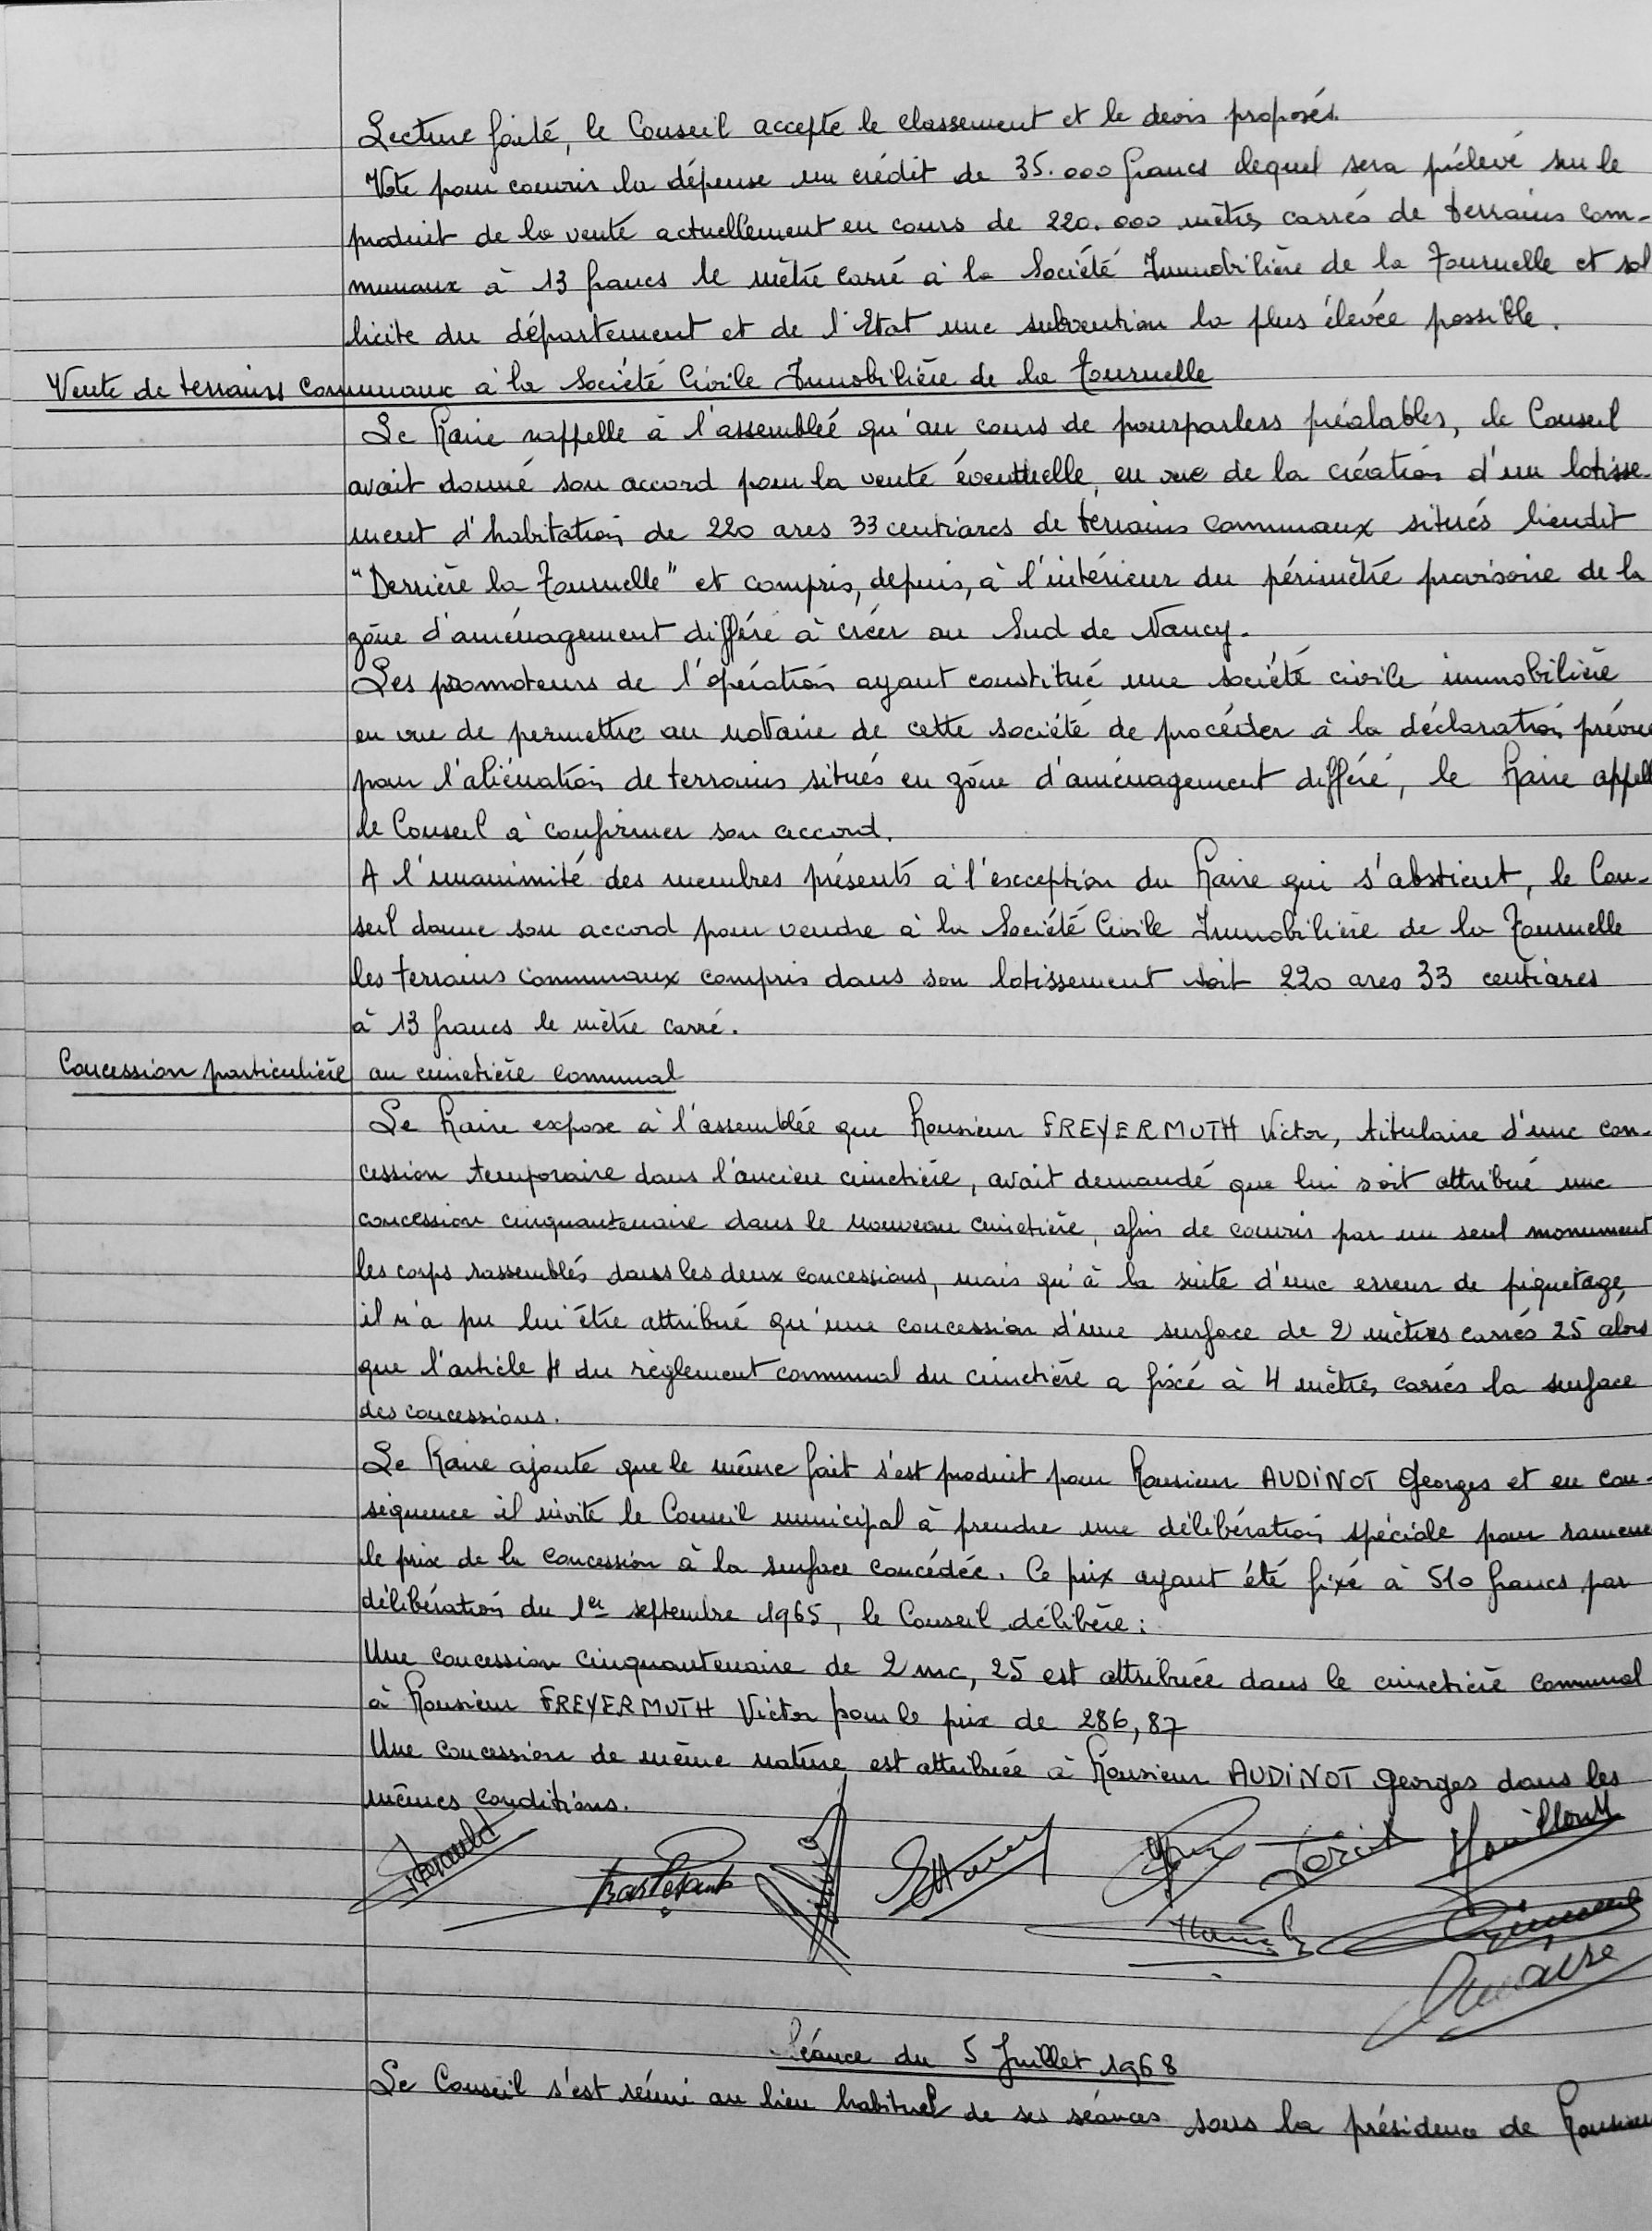 Lecture faite, le Conseil accepte le classement et le devis proposés.
Vote pour couvrir la dépense un crédit de 35.000 francs lequel sera prélevé sur le
produit de la vente actuellement en cours de 220.000 mètres carrés de terrains com-
munaux à 13 francs le mètre carré à la Société Immobilière de la Tournelle et sol
licite du département et de l'Etat une subvention la plus élevée possible.
Vente de terrains communaux à la Société Civile Immobilière de la Tournelle
Le Maire rappelle à l'assemblée qu'au cours de pourparlers préalables, le Conseil
avait donné son accord pour la vente éventuelle, en vue de la création d'un lotisse-
ment d'habitation de 220 ares 33 centiares de terrains communaux situés lieudit
"Derrière la Tournelle" et compris, depuis, à l'intérieur du périmètre provisoire de la
zône d'aménagement différé à créer au Sud de Nancy.
Les promoteurs de l'opération ayant constitué une société civile immobilière
en vue de permettre au notaire de cette société de procéder à la déclaration prévue
pour l'aliénation de terrains situés en zône d'aménagement différé, le Maire appell
le Conseil à confirmer son accord.
A l'unanimité des membres présents à l'exception du Maire qui s'abstient, le Con-
seil donne son accord pour vendre à la Société Civile Immobilière de la Tournelle
les terrains communaux compris dans son lotissement soit 220 ares 33 centiares
à 13 francs le mètre carré.
Concession particulière au cimetière communal
Le Maire expose à l'assemblée que Monsieur FREYERMUTH Victor, titulaire d'une con-
cession temporaire dans l'ancien cimetière, avait demandé que lui soit attribué une
concession cinquantenaire dans le nouveau cimetière, afin de couvrir par un seul monument
les corps rassemblés dans les deux concessions, mais qu'à la suite d'une erreur de piquetage,
il n'a pu lui être attribué qu'une concession d'une surface de 2 mètres carrés 25 alors
que l'article 4 du règlement communal du cimetière a fixé à 4 mètres carrés la surface
des concessions.
Le Maire ajoute que le même fait s'est produit pour Monsieur AUDINOT Georges et en con-
séquence il invite le Conseil municipal à prendre une délibération spéciale pour ramene
le prix de la concession à la surface concédée. Ce prix ayant été fixé à 510 francs par
délibération du 1er septembre 1965, le Conseil délibère :
Une concession cinquantenaire de 2 mc, 25 est attribuée dans le cimetière communal
à Monsieur FREYERMUTH Victor pour le prix de 286,87
Une concession de même nature est attribuée à Monsieur AUDINOT Georges dans les
mêmes conditions.
Séance du 5 Juillet 1968
Le Conseil s'est réuni au lieu habituel de ses séances sous la présidence de Monsieur